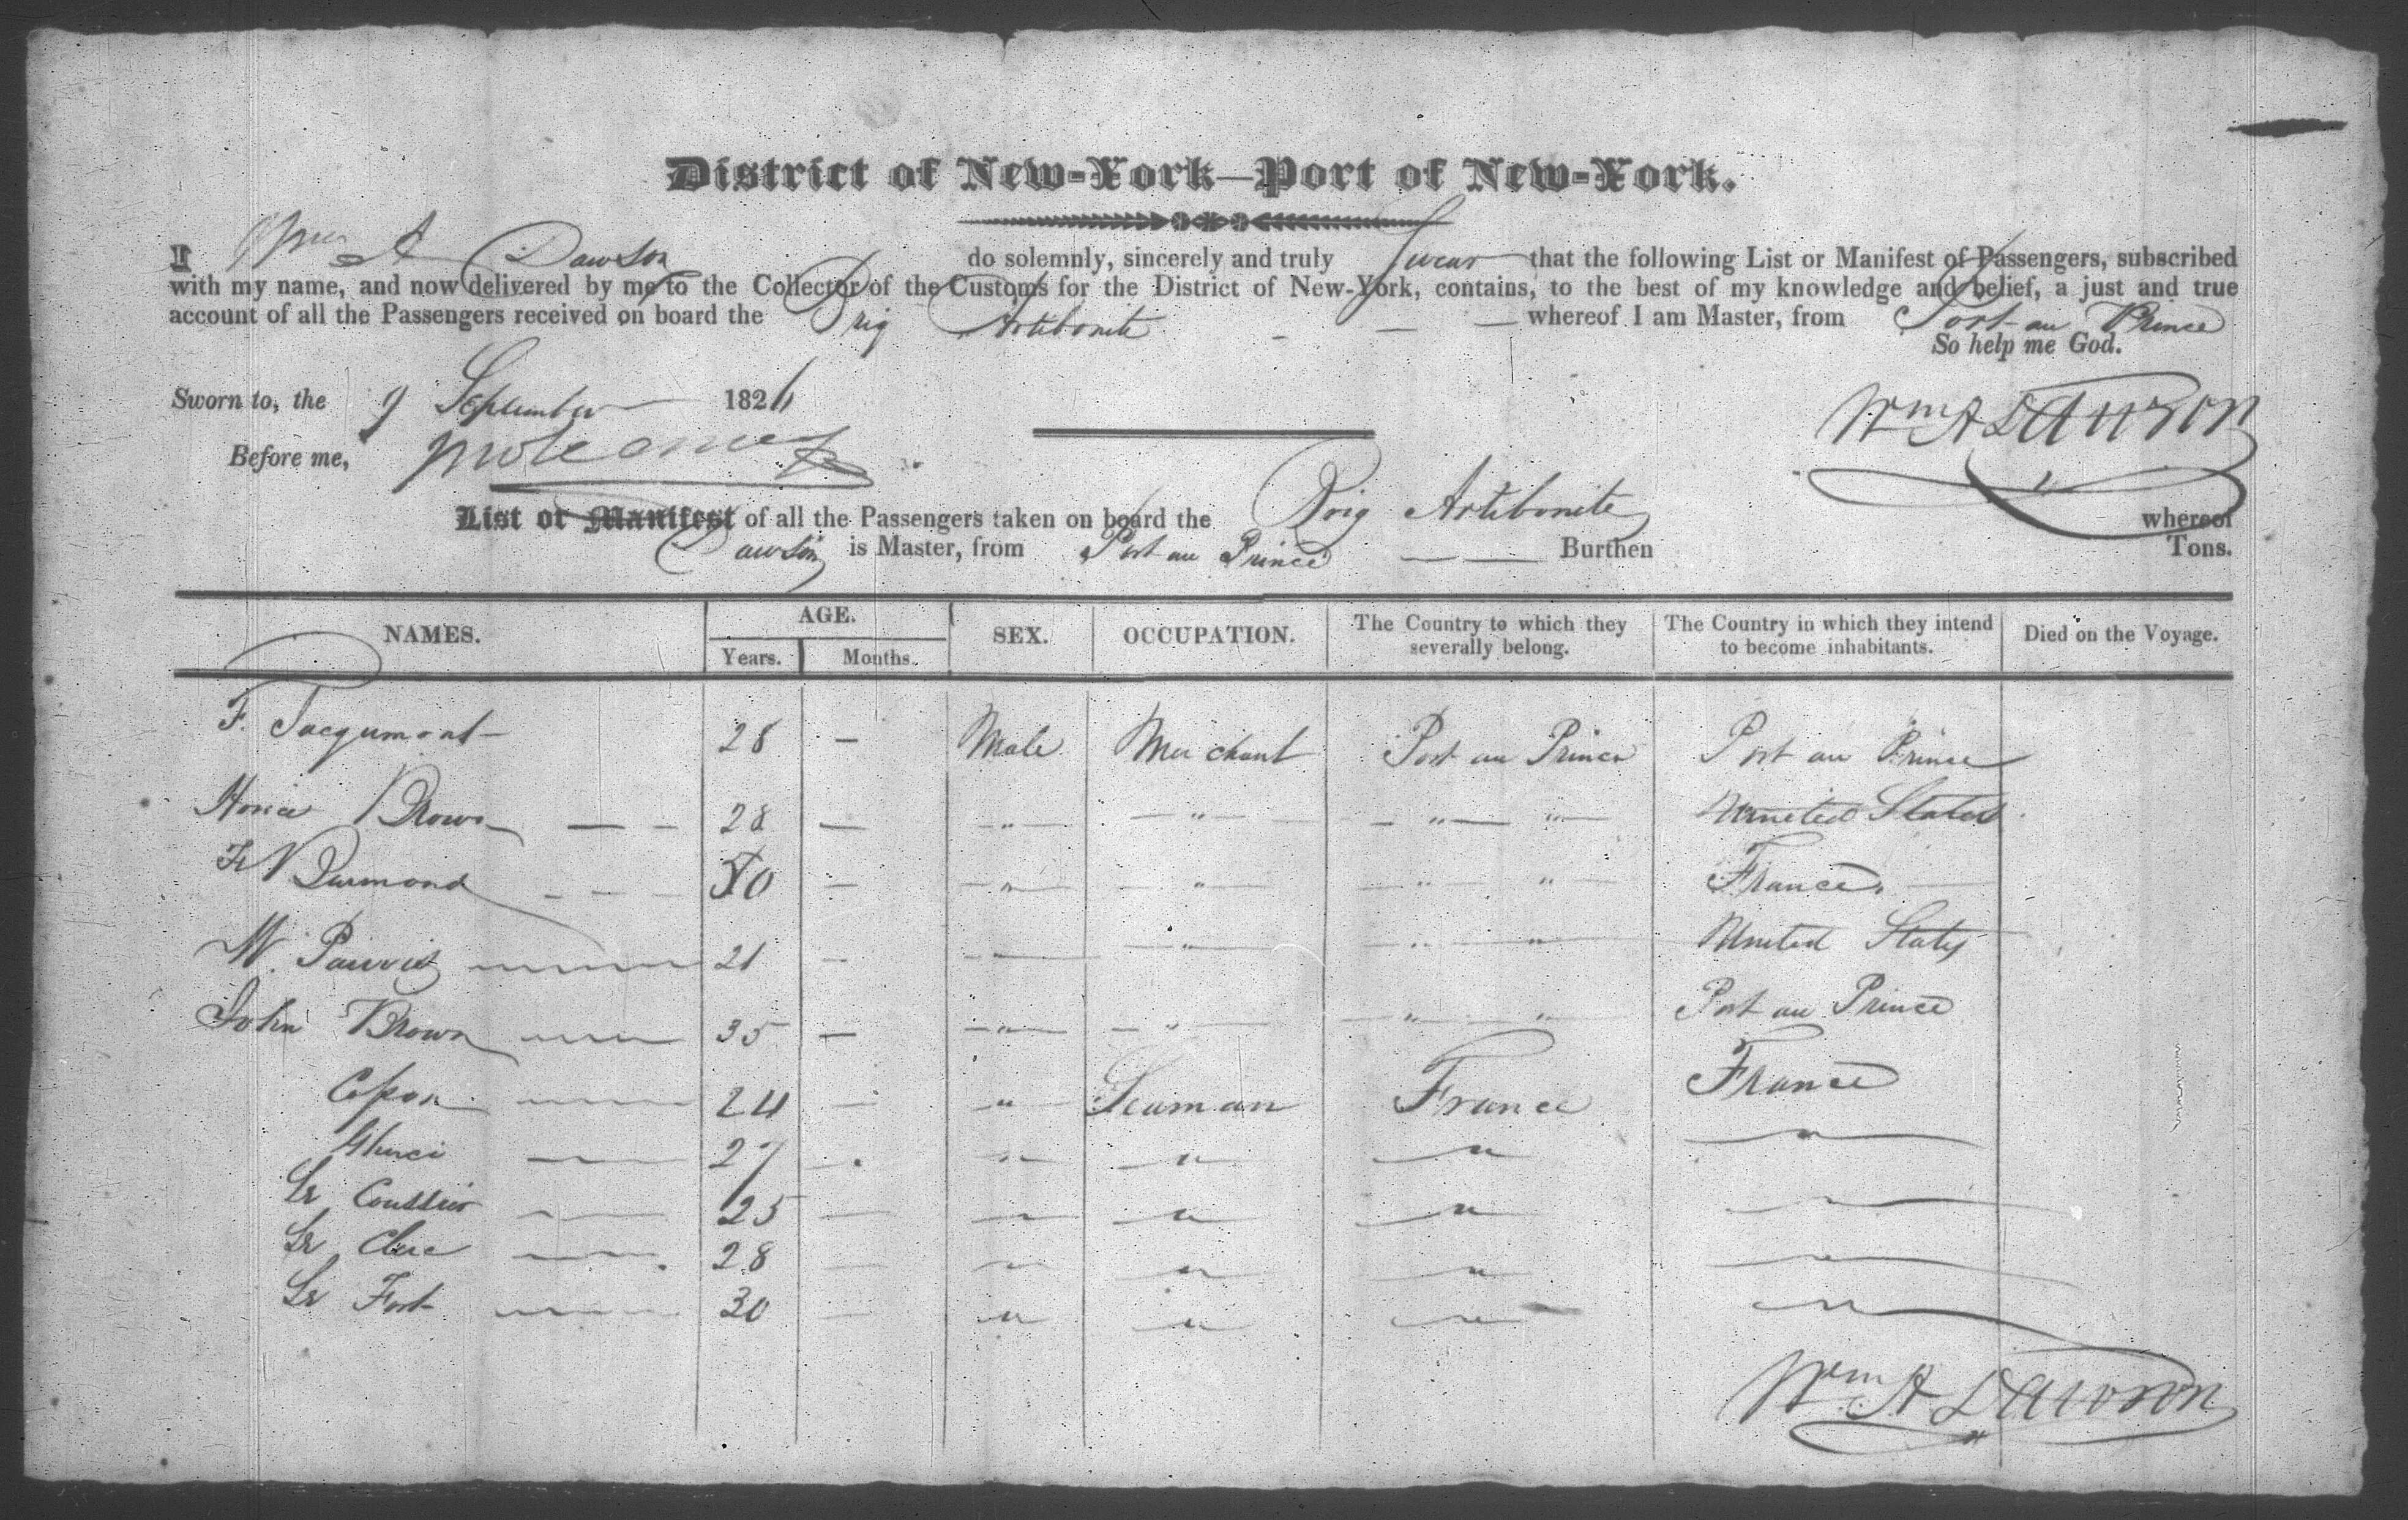 District of New-York—Port of New-York.
I Wm A Dawson do solemnly, sincerely and truly Swear that the following List or Manifest of Passengers, subscribed
with my name, and now delivered by me to the Collector of the Customs for the District of New-York, contains, to the best of my knowledge and belief, a just and true
account of all the Passengers received on board the Brig Artibonite whereof I am Master, from Port au Prince
So help me God.
Sworn to, the 9 September 1826
Wm A Dawson
Before me,
List or Manifest of all the Passengers taken on board the Brig Artibonite whereof
Dawson is Master, from Port au Prince Burthen Tons.
NAMES. AGE. Years. Months. SEX. OCCUPATION. The Country to which they severally belong. The Country in which they intend to become inhabitants. Died on the Voyage.
F. Jacqumont 28 — Male Merchant Port au Prince Port au Prince
Brown 28 — " " " " United States
Durmond — " " " " France.
W. 21 — " " " United States
John Brown 35 — " " " " Port au Prince
24 — " Seaman France France
27 — " " " "
Le 25 — " " " "
Le Clerc 28 — " " " "
Le Fort 30 — " " " "
Wm A Dawson